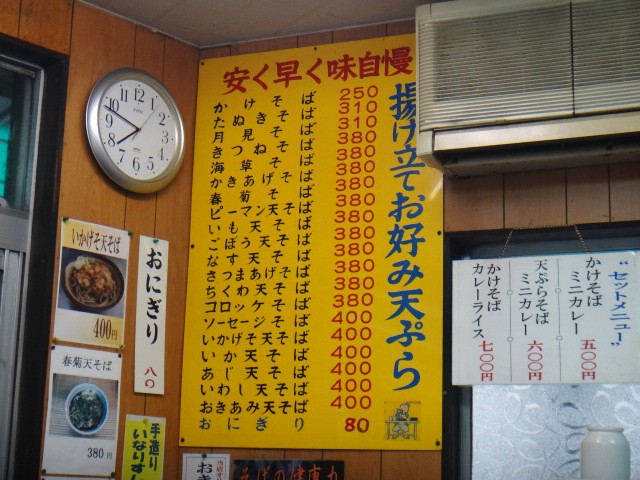 安く早く味自慢
かけそば 250
たぬきそば 310
月見そば 310
きつねそば 380
海草そば 380
かきあげそば 380
春菊そば 380
ピーマン天そば 380
いも天そば 380
ごぼう天そば 380
なす天そば 380
さつまあげそば 380
ちくわ天そば 380
コロッケそば 380
ソーセージそば 400
いかげそ天そば 400
いか天そば 400
あじ天そば 400
いわし天そば 400
おきあみ天そば 400
おにぎり 80
揚げ立てお好み天ぷら
"セットメニュー"
かけそば
ミニカレー
五〇〇円
天ぷらそば
ミニカレー
六〇〇円
かけそば
カレーライス
七〇〇円
いかげそ天そば
400円
おにぎり
八〇
春菊天そば
380円
手造り
いなりずし